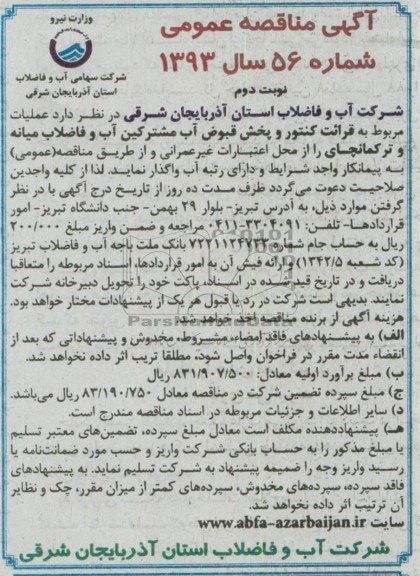 آگهی مناقصه عمومی
شماره ۵۶ سال ۱۳۹۳
نوبت دوم
وزارت نیرو
شرکت سهامی آب و فاضلاب
استان آذربایجان شرقی
شرکت آب و فاضلاب استان آذربایجان شرقی در نظر دارد عملیات
مربوط به قرائت کنتور و پخش قبوض آب مشترکین آب و فاضلاب میانه
و ترکمانچای را از محل اعتبارات غیرعمرانی و از طریق مناقصه(عمومی)
به پیمانکار واجد شرایط و دارای رتبه آب واگذار نمایـد. لذا از کلیه واجدین
صلاحیت دعوت می‌گردد ظرف مدت ده روز از تاریخ درج آگهی با در نظر
گرفتن موارد ذیل، به آدرس تبریز- بلوار ۲۹ بهمن- جنب دانشگاه تبریز- امور
قراردادها- تلفن: ۳۳۰۴۰۹۱-۰۴۱۱ مراجعه و ضمن واریز مبلغ ۲۰۰/۰۰۰
ریال به حساب جام شماره ۷۲۲۱۱۲۴۷۲۶ بانک ملت باجه آب و فاضلاب تبریز
(کد شعبه ۱۳۴۲/۵) و ارائه فیش آن به امور قراردادها، اسناد مربوطه را متعاقبا
دریافت و در تاریخ قید شده در اسناد، پاکت خود را تحویل دبیرخانه شرکت
نمایند. بدیهی است شرکت در رد یا قبول هر یک از پیشنهادات مختار خواهد بود.
هزینه آگهی از برنده مناقصه اخذ خواهد شد.
ParsNamadData
الف) به پیشنهادهای فاقد امضاء، مشـروط، مخدوش و پیشنهاداتی که بعد از
انقضاء مدت مقرر در فراخوان واصل شود، مطلقا تریب اثر داده نخواهد شد.
ب) مبلغ برآورد اولیه معادل: ۸۳۱/۹۰۷/۵۰۰ ریال
ج) مبلغ سپرده تضمین شرکت در مناقصه معادل ۸۳/۱۹۰/۷۵۰ ریال می‌باشد.
د) سایر اطلاعات و جزئیات مربوطه در اسناد مناقصه مندرج است.
هـ) پیشنهاددهنده مکلف است معادل مبلغ سپرده، تضمین‌های معتبر تسلیم
یا مبلغ مذکور را به حساب بانکی شرکت واریز و حسب مورد ضمانت‌نامه یا
رسـید واریز وجه را ضمیمه پیشنهاد به شرکت تسلیم نماید. به پیشنهادهای
فاقد سپرده، سپرده‌های مخدوش، سپرده‌های کمتر از میزان مقرر، چک و نظایر
آن ترتیب اثر داده نخواهد شد.
سایت www.abfa-azarbaijan.ir
شرکت آب و فاضلاب استان آذربایجان شرقی